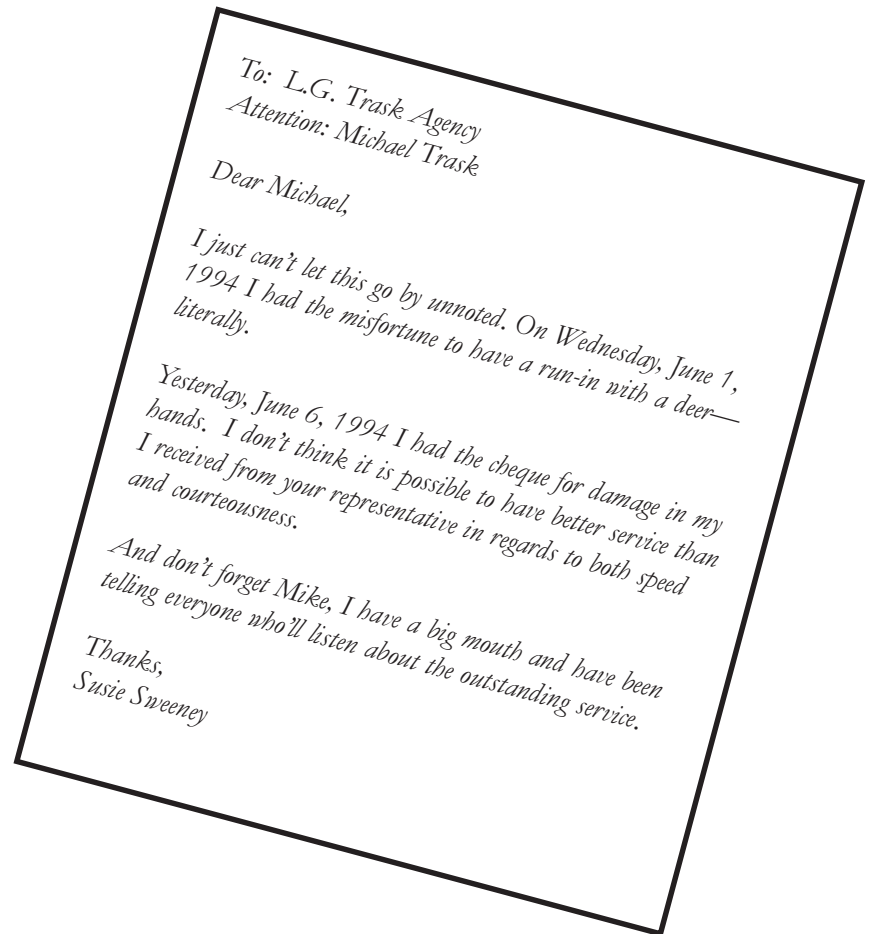 To:  L.G. Trask Agency
Attention: Michael Trask
Dear Michael,
I just can't let this go by unnoted. On Wednesday, June 1,
1994 I had the misfortune to have a run-in with a deer—
literally.
Yesterday, June 6, 1994 I had the cheque for damage in my
hands.  I don't think it is possible to have better service than
I received from your representative in regards to both speed
and courteousness.
And don't forget Mike, I have a big mouth and have been
telling everyone who'll listen about the outstanding service.
Thanks,
Susie Sweeney